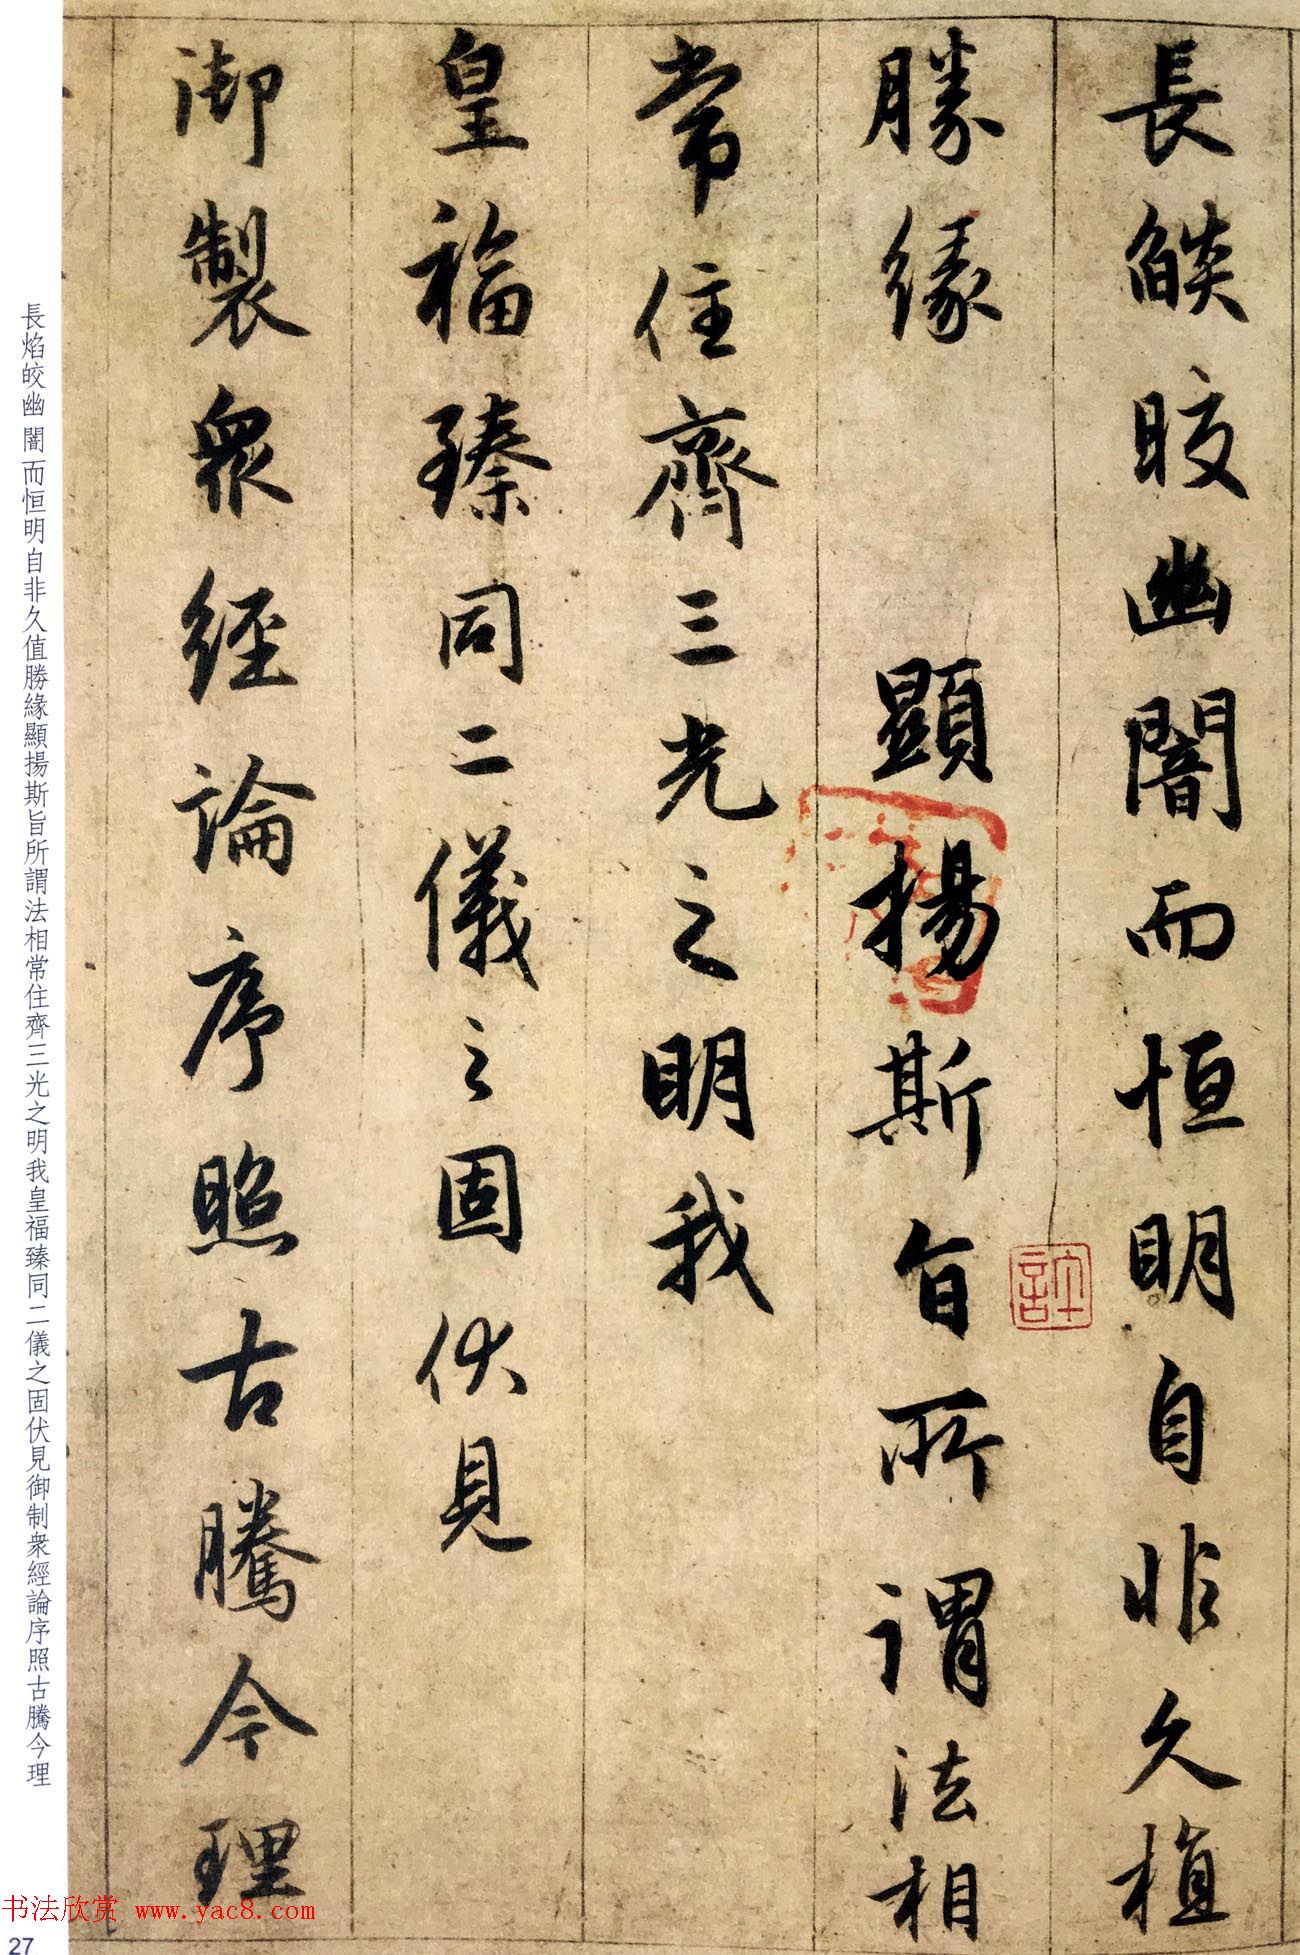 長燄晈幽闇而恒明自非久植
勝緣 顯揚斯旨所謂法相
常住齊三光之明我
皇福臻同二儀之固伏見
御製衆經論序照古騰今理
長焰皎幽闇而恒明自非久值勝緣顯揚斯旨所謂法相常住齊三光之明我皇福臻同二儀之固伏見御制衆經論序照古騰今理
书法欣赏 www.yac8.com
27